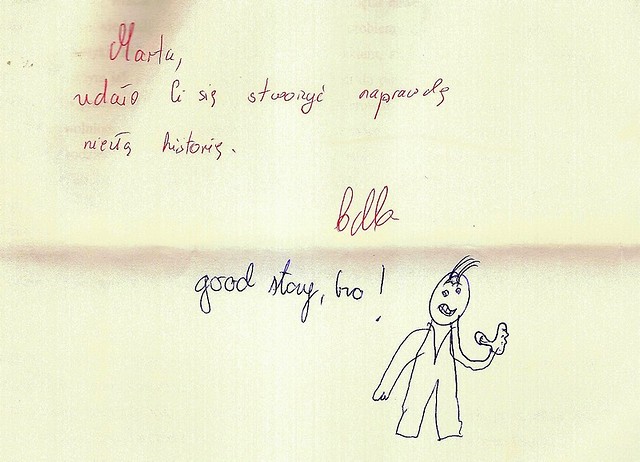 Marta,
udało Ci się stworzyć naprawdę
niezłą historię.
bdb
good story, bro!